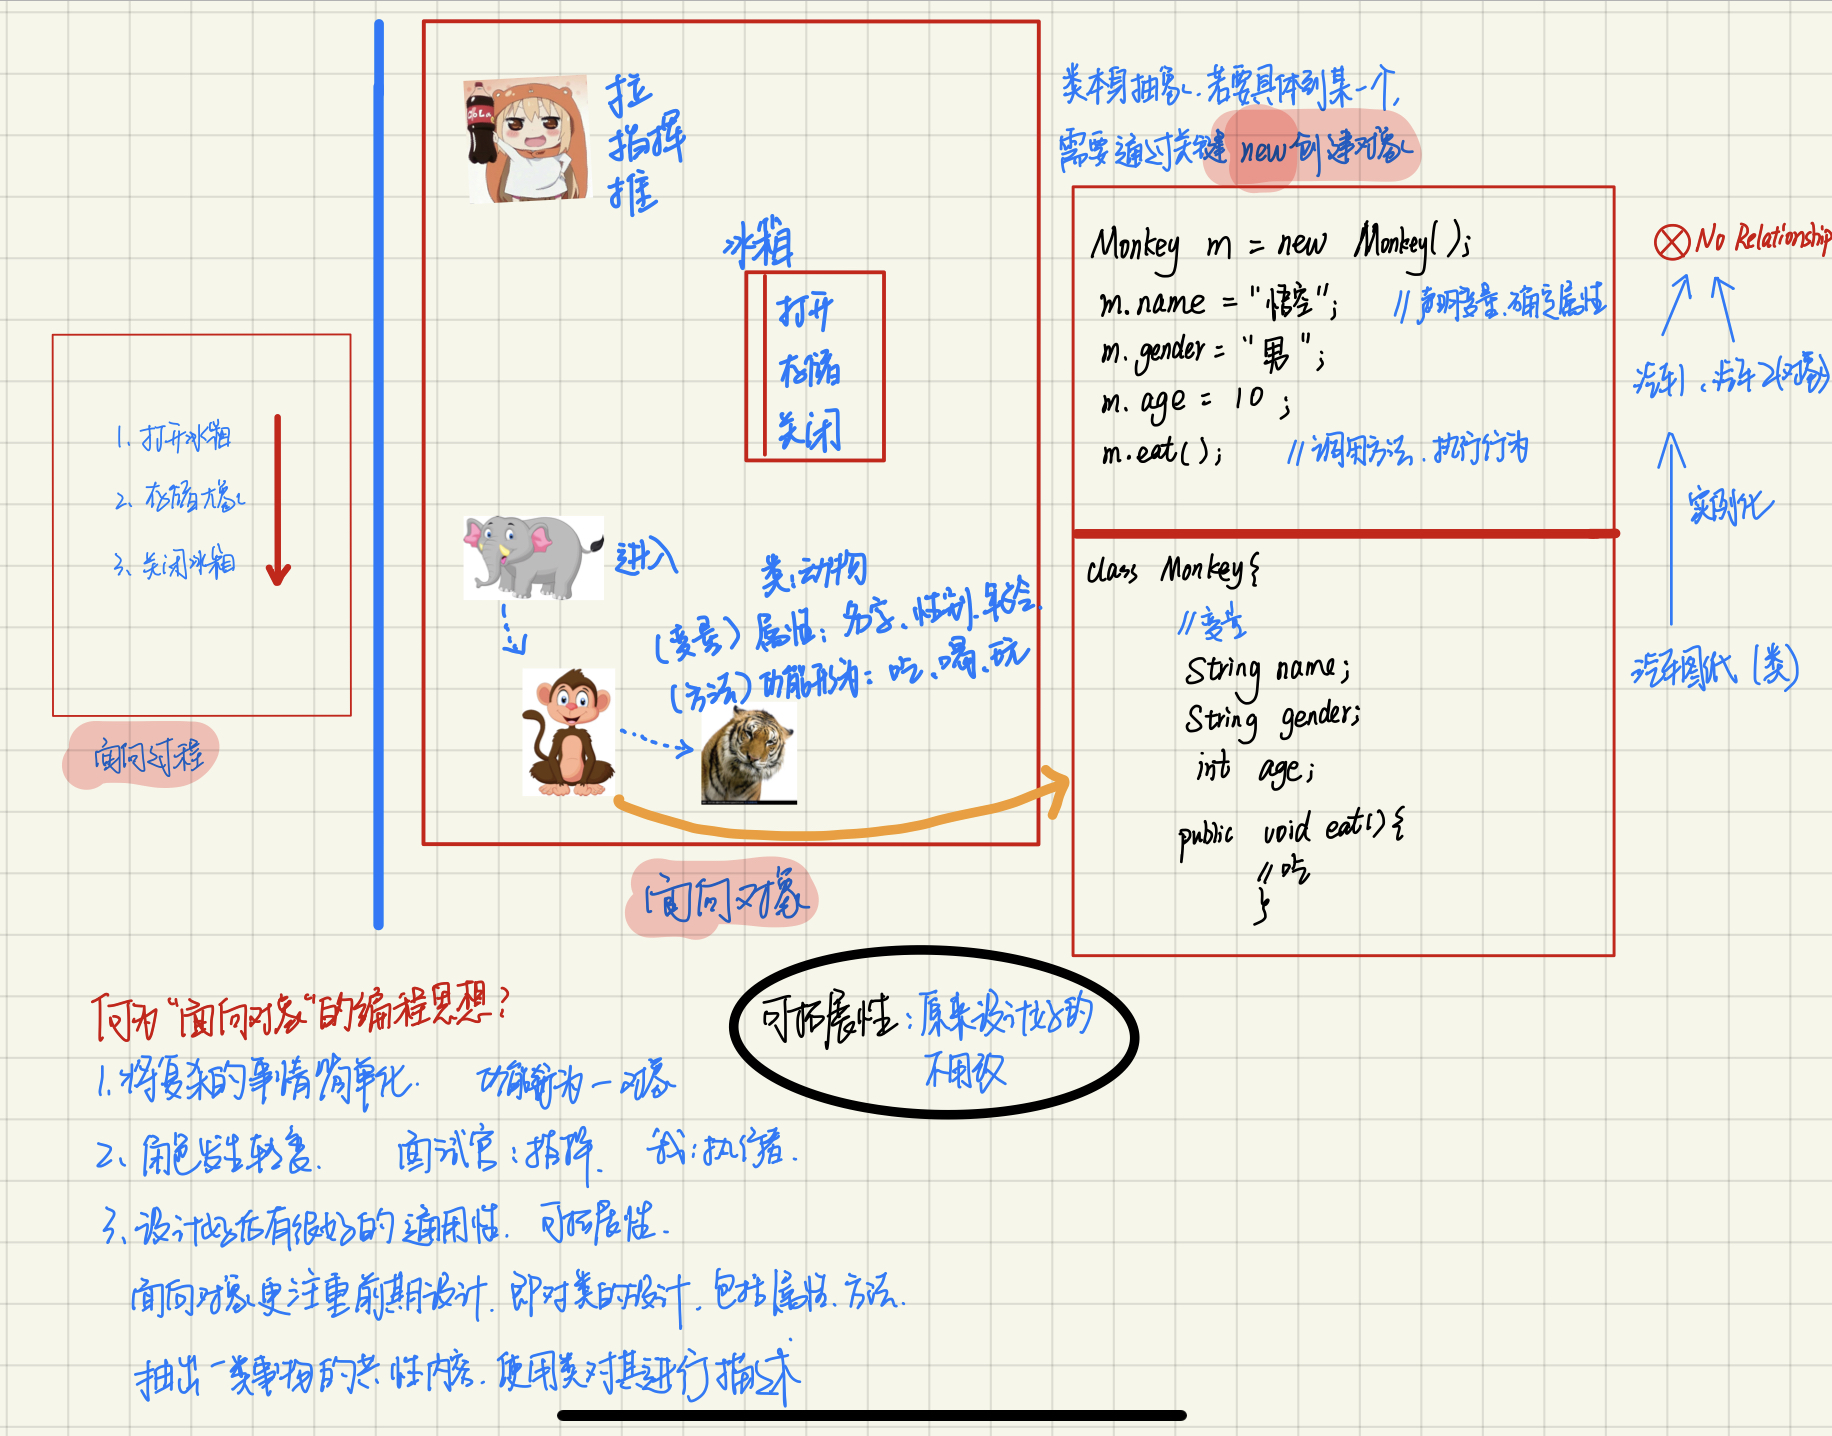 1. 打开冰箱
2、存储大象
3、关闭冰箱
面向过程
Cola
拉
指挥
推
冰箱
打开
存储
关闭
进入
类:动物
(变量)属性:名字、性别、年龄
(方法)功能行为:吃、喝、玩
面向对象
类本身抽象.若要具体到某一个,
需要通过关键 new 创建对象
Monkey m = new Monkey();
m.name = "悟空"; //声明变量.确定属性
m.gender = "男";
m.age = 10;
m.eat(); //调用方法.执行行为
class Monkey{
//变量
String name;
String gender;
int age;
public void eat(){
//吃
}
No Relationship
汽车1、汽车2(对象)
实例化
汽车图纸(类)
何为"面向对象"的编程思想?
1.将复杂的事情简单化. 功能行为一对象
2、角色发生转变. 面试官:指挥. 我:执行者.
3、设计好后有很好的通用性. 可拓展性.
面向对象更注重前期设计.即对类的设计.包括属性.方法.
抽出一类事物的共性内容.使用类对其进行描述
可拓展性:原来设计好的
不用改